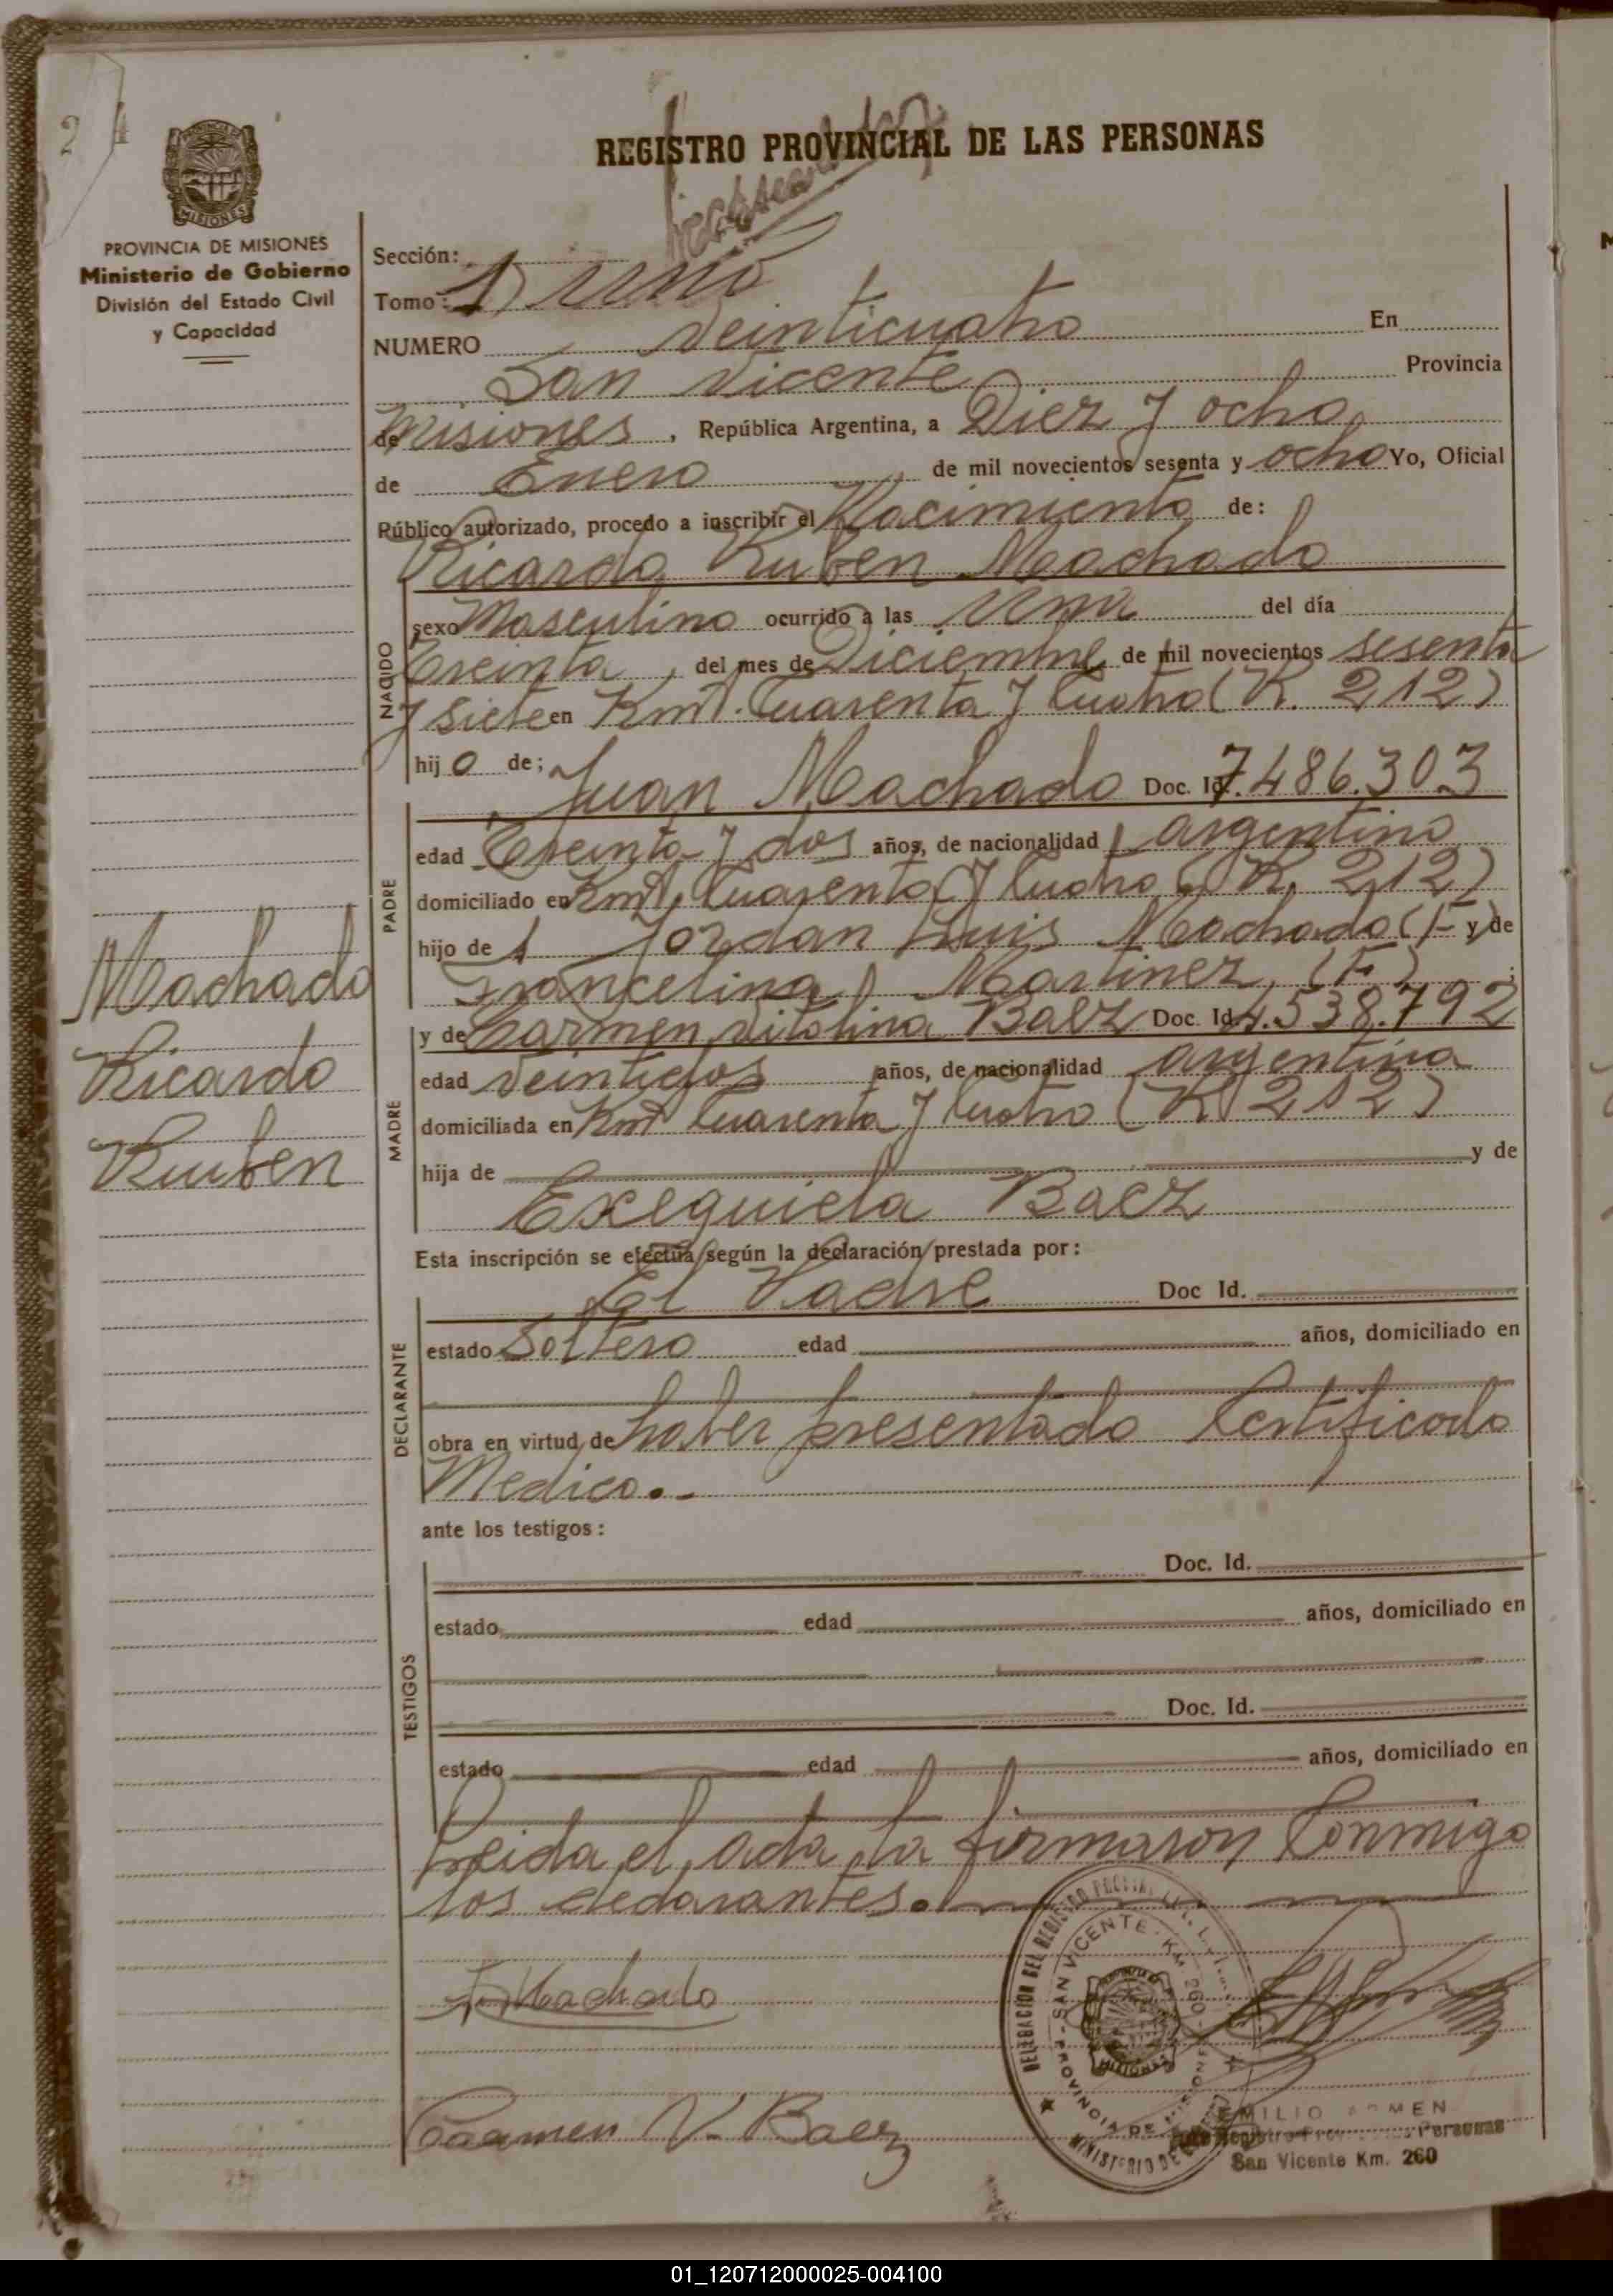 24
REGISTRO PROVINCIAL DE LAS PERSONAS
MISIONES
PROVINCIA DE MISIONES
Ministerio de Gobierno
División del Estado Civil
y Capacidad
Sección:
Tomo: 1) Uno
NUMERO Veinticuatro En
San Vicente Provincia
de Misiones, República Argentina, a Diez y ocho
de Enero de mil novecientos sesenta y ocho Yo, Oficial
Público autorizado, procedo a inscribir el Nacimiento de:
Ricardo Ruben Machado
NACIDO
sexo Masculino ocurrido a las Una del día
Treinta, del mes de Diciembre de mil novecientos sesenta
y siete en Kmt. Cuarenta y Cuatro (R. 212)
hijo de; Juan Machado Doc. Id. 7.486.303
PADRE
edad Treinta y dos años, de nacionalidad argentino
domiciliado en Kmt. Cuarenta y Cuatro (R. 212)
hijo de Jordan Luis Machado (F) y de
Francelina Martinez (F)
MADRE
y de Carmen Vitolina Baez Doc. Id. 4.538.792
edad Veintidos años, de nacionalidad argentina
domiciliada en Kmt Cuarenta y Cuatro (R 212)
hija de y de
Exequiela Baez
Machado
Ricardo
Ruben
Esta inscripción se efectúa según la declaración prestada por:
DECLARANTE
El Padre Doc Id.
estado Soltero edad años, domiciliado en
obra en virtud de haber presentado Certificado
Medico.-
ante los testigos:
TESTIGOS
Doc. Id.
estado edad años, domiciliado en
Doc. Id.
estado edad años, domiciliado en
Leida el acta la firmaron Conmigo
los declarantes.
Machado
Carmen V. Baez
DELEGACION DEL REGISTRO
SAN VICENTE - KM 260 -
PROVINCIA DE MISIONES
MISIONES
MINISTERIO DE
EMILIO
Personas
San Vicente Km. 260
01_120712000025-004100